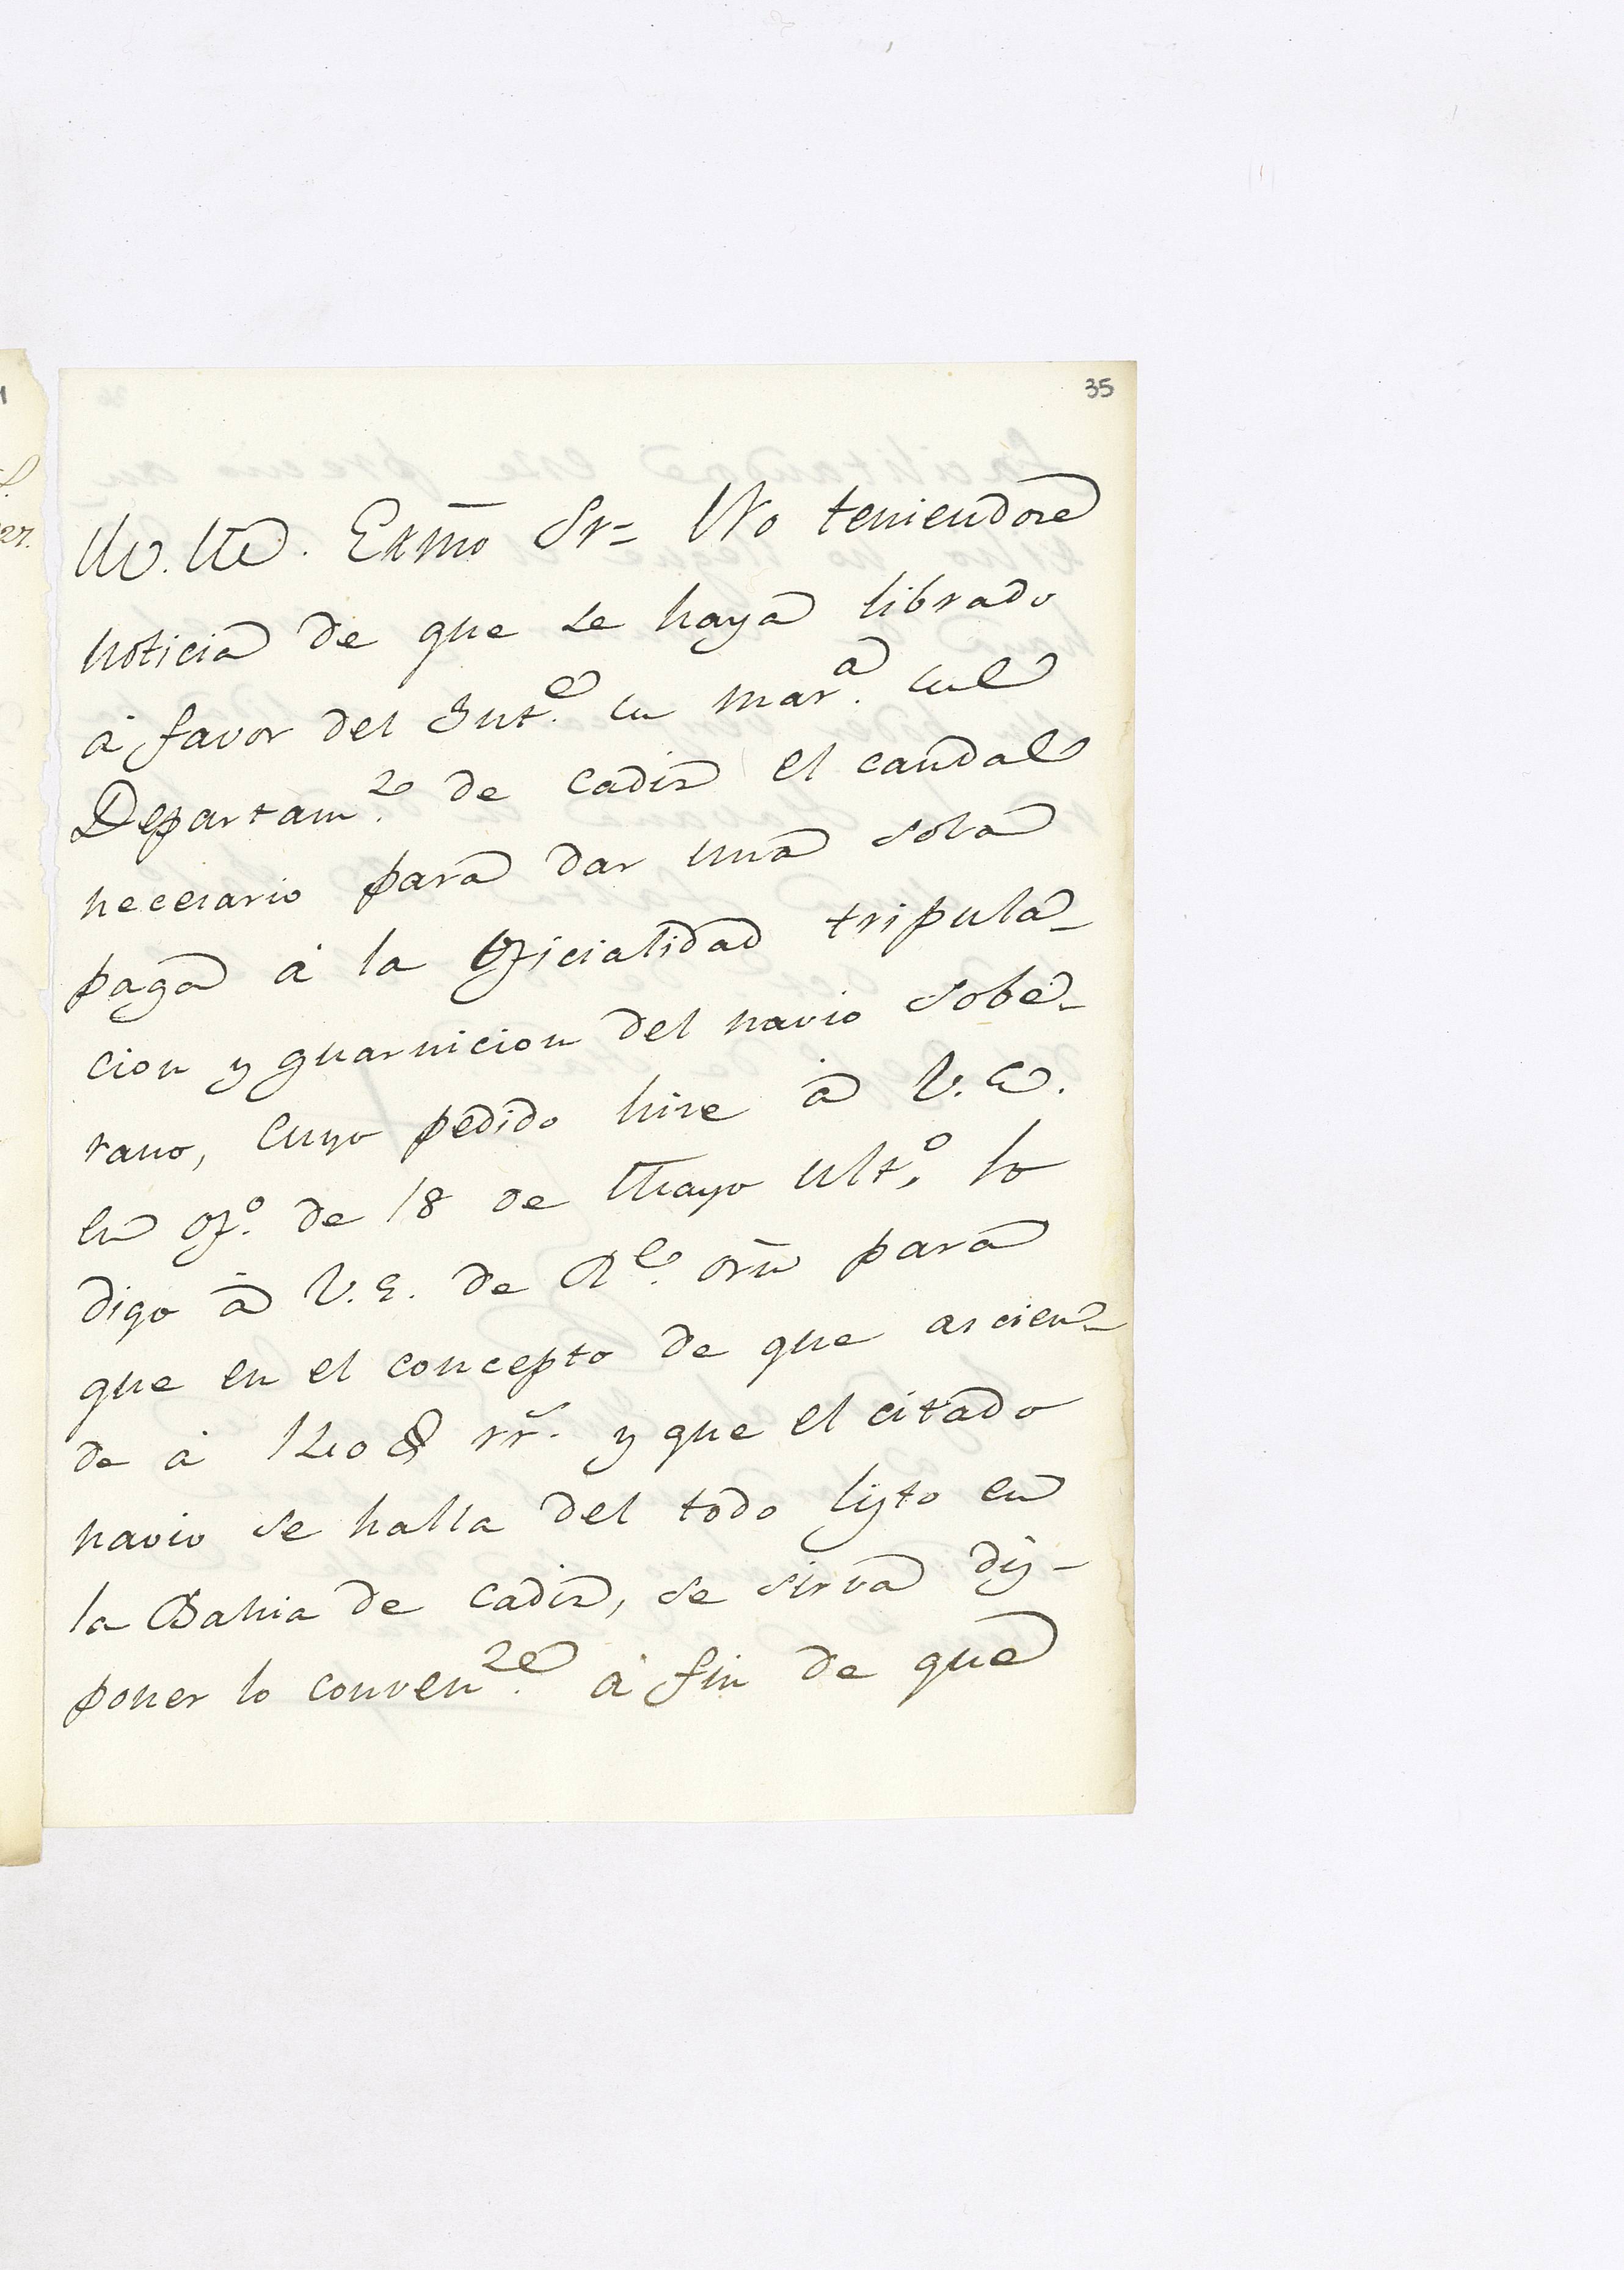 35
Exmo Sr= No teniendose
noticia de que se haya librado
à favor del Int.e en mar.a en el
Departam.to de Cadiz el caudal
necesario para dar una sola
paga à la oficialidad tripula-
cion y guarnicion del navio Sobe-
rano, cuyo pedido hice à V.E.
en of.o de 18 de Mayo ult.o lo
digo à V.E. de Rl. orn para
que en el concepto de que ascien-
de à rr.s y que el citado
navio se halla del todo listo en
la Bahia de Cadiz, se sirva dis-
poner lo conven.te à fin de que